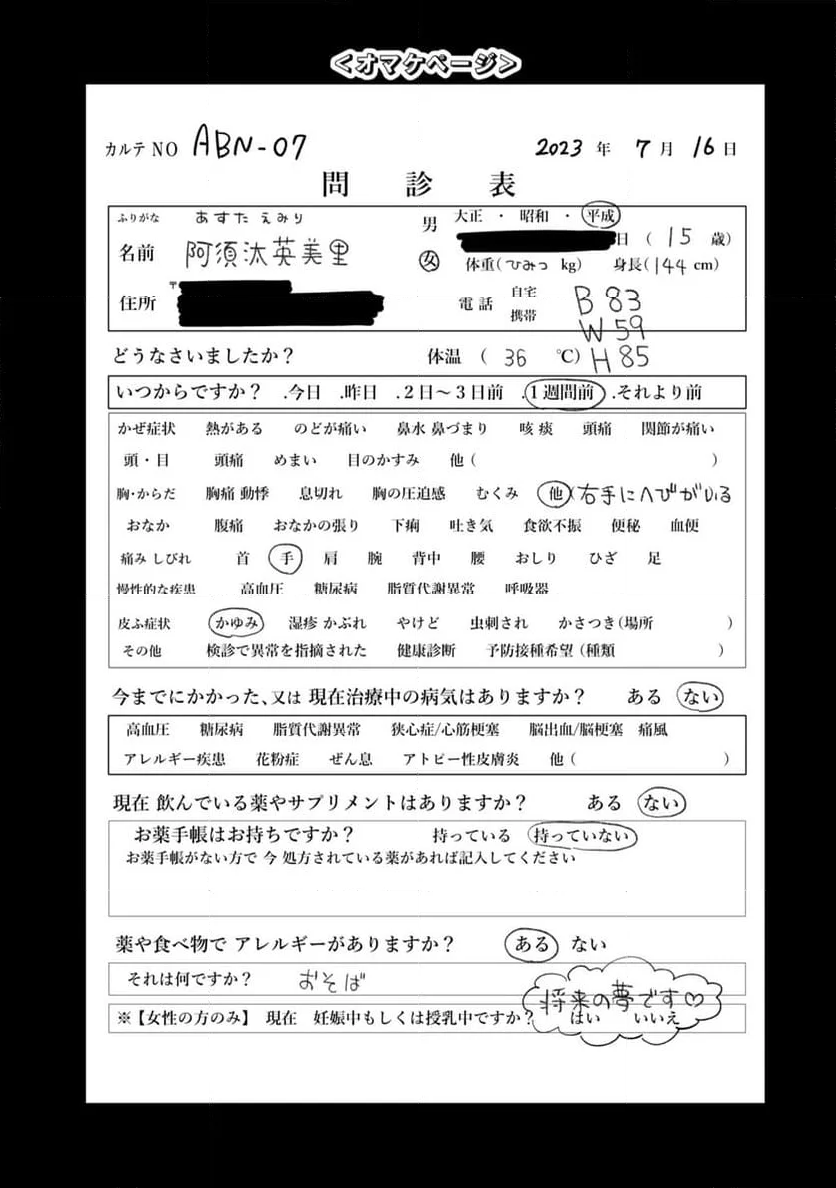 <オマケページ>
カルテ NO ABN-07 2023 年 7 月 16 日
問 診 表
ふりがな あすた えみり 男 大正 ・ 昭和 ・ 平成
名前 阿須汰英美里 女 日 ( 15 歳)
体重(ひみつ kg) 身長(144 cm)
〒
住所 電話 自宅 B 83
携帯 W 59
どうなさいましたか? 体温 ( 36 ℃) H 85
いつからですか? .今日 .昨日 .2日〜3日前 .1週間前 .それより前
かぜ症状 熱がある のどが痛い 鼻水 鼻づまり 咳 痰 頭痛 関節が痛い
頭・目 頭痛 めまい 目のかすみ 他 ( )
胸・からだ 胸痛 動悸 息切れ 胸の圧迫感 むくみ 他 (右手にヘびがいる
おなか 腹痛 おなかの張り 下痢 吐き気 食欲不振 便秘 血便
痛み しびれ 首 手 肩 腕 背中 腰 おしり ひざ 足
慢性的な疾患 高血圧 糖尿病 脂質代謝異常 呼吸器
皮ふ症状 かゆみ 湿疹 かぶれ やけど 虫刺され かさつき(場所 )
その他 検診で異常を指摘された 健康診断 予防接種希望 (種類 )
今までにかかった、又は 現在治療中の病気はありますか? ある ない
高血圧 糖尿病 脂質代謝異常 狭心症/心筋梗塞 脳出血/脳梗塞 痛風
アレルギー疾患 花粉症 ぜん息 アトピー性皮膚炎 他 ( )
現在 飲んでいる薬やサプリメントはありますか? ある ない
お薬手帳はお持ちですか? 持っている 持っていない
お薬手帳がない方で 今 処方されている薬があれば記入してください
薬や食べ物で アレルギーがありますか? ある ない
それは何ですか? おそば
将来の夢です♡
※【女性の方のみ】 現在 妊娠中もしくは授乳中ですか? はい いいえ